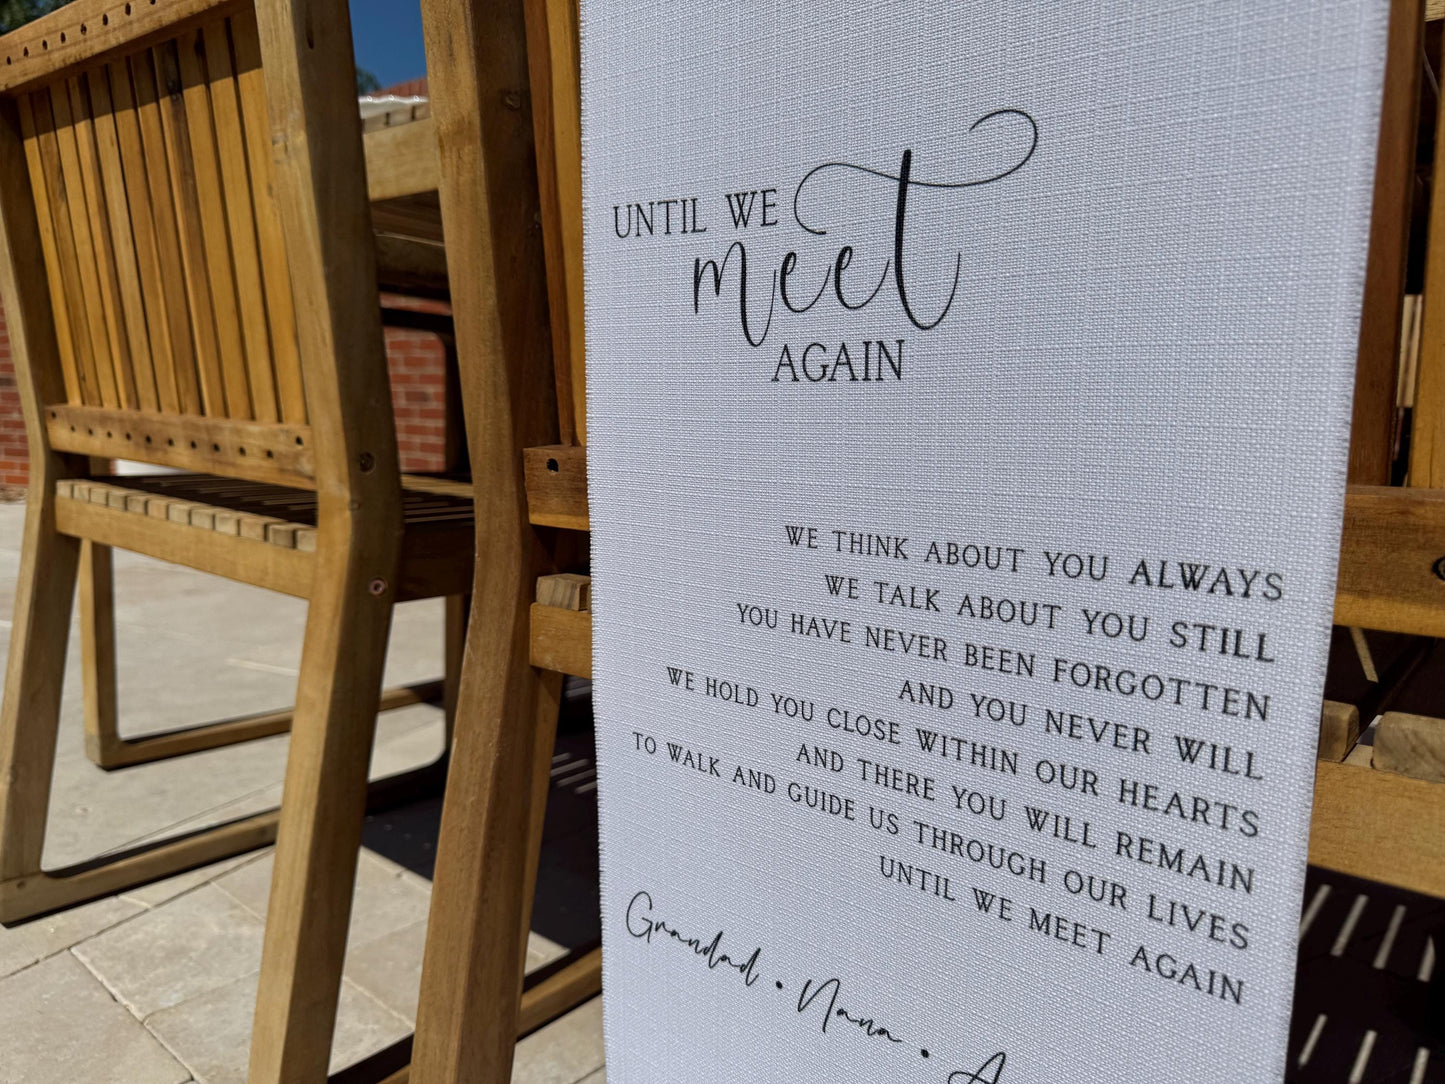 UNTIL WE
meet
AGAIN
WE THINK ABOUT YOU ALWAYS
WE TALK ABOUT YOU STILL
YOU HAVE NEVER BEEN FORGOTTEN
AND YOU NEVER WILL
WE HOLD YOU CLOSE WITHIN OUR HEARTS
AND THERE YOU WILL REMAIN
TO WALK AND GUIDE US THROUGH OUR LIVES
UNTIL WE MEET AGAIN
Grandad • Nana •